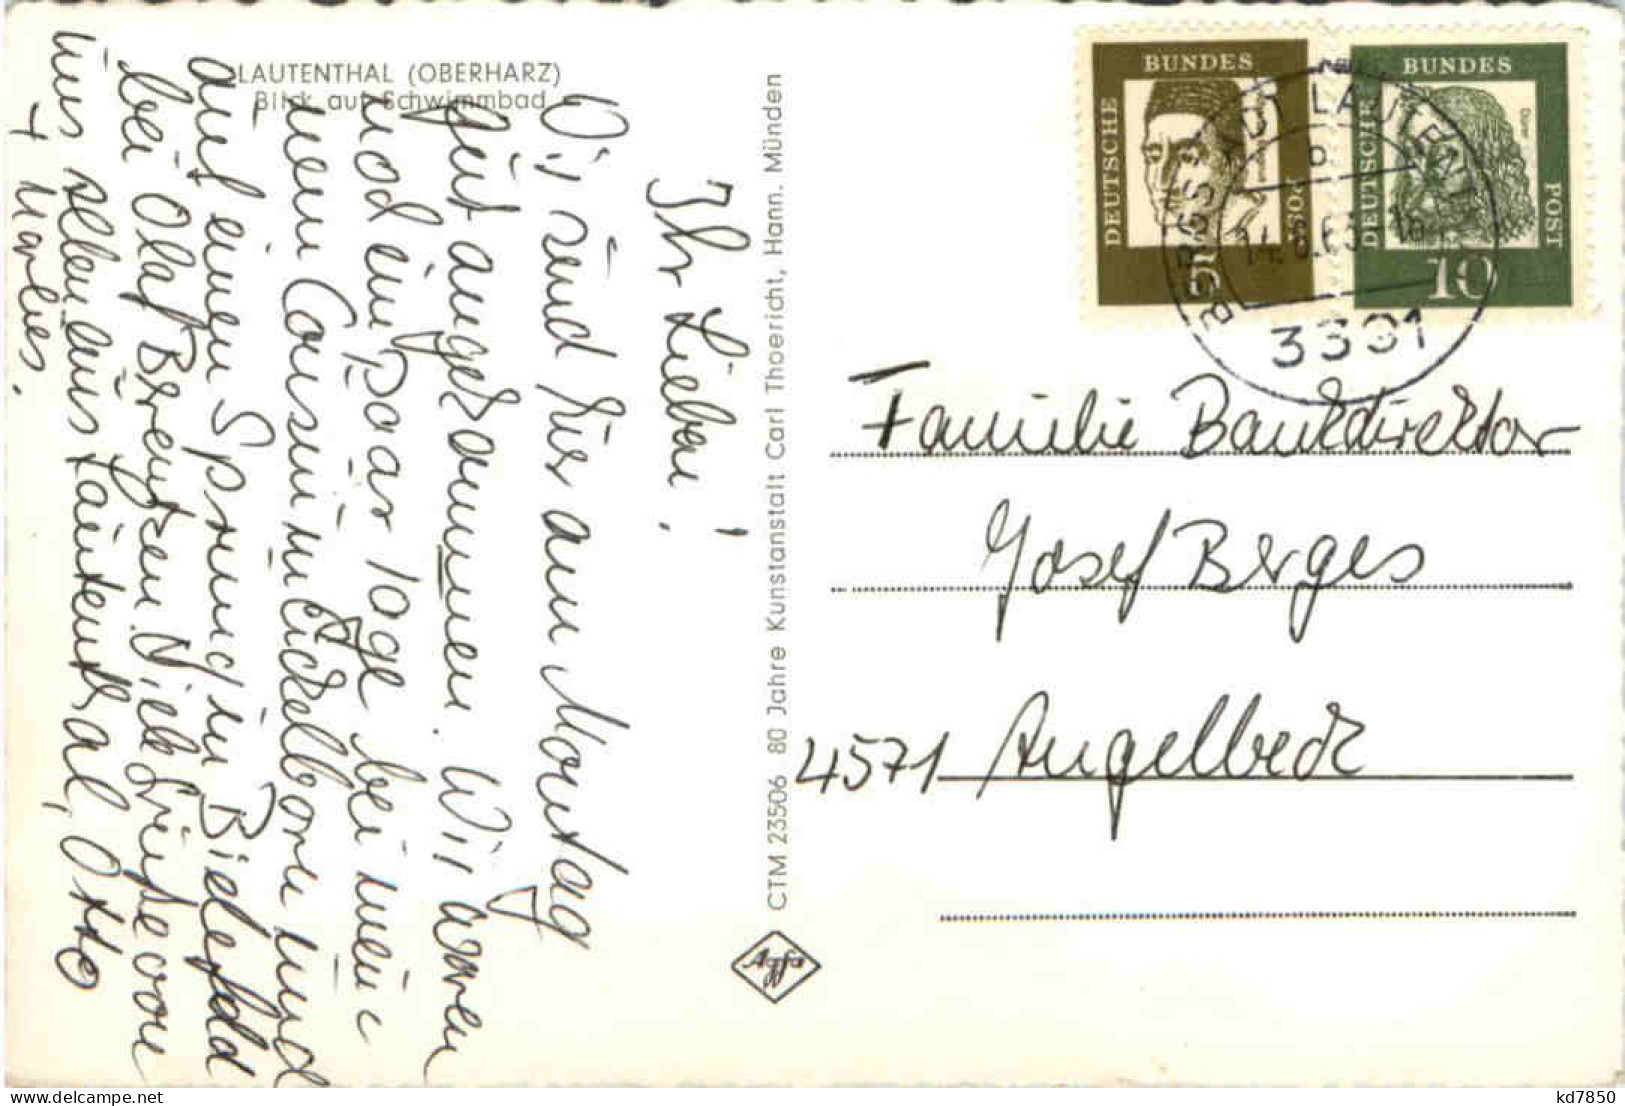 LAUTENTHAL (OBERHARZ)
Blick auf Schwimmbad
Ihr Lieben!
Wir sind hier am Montag
gut angekommen. Wir waren
noch ein paar Tage bei mei-
nem Cousin in Eickelborn und
auf einen Sprung in Bielefeld
bei Olaf Brentzen. Viele Grüße von
uns allen aus Lautenthal, Otto
+ Marlies.
CTM 23506 80 Jahre Kunstanstalt Carl Thoericht, Hann. Münden
Agfa
DEUTSCHE BUNDES POST
5
DEUTSCHE BUNDES POST
10
Dürer
BERGSTADT LAUTENT
14.6.63-18
3381
Familie Bankdirektor
Josef Berges
4571 Angelbeck
kd7850